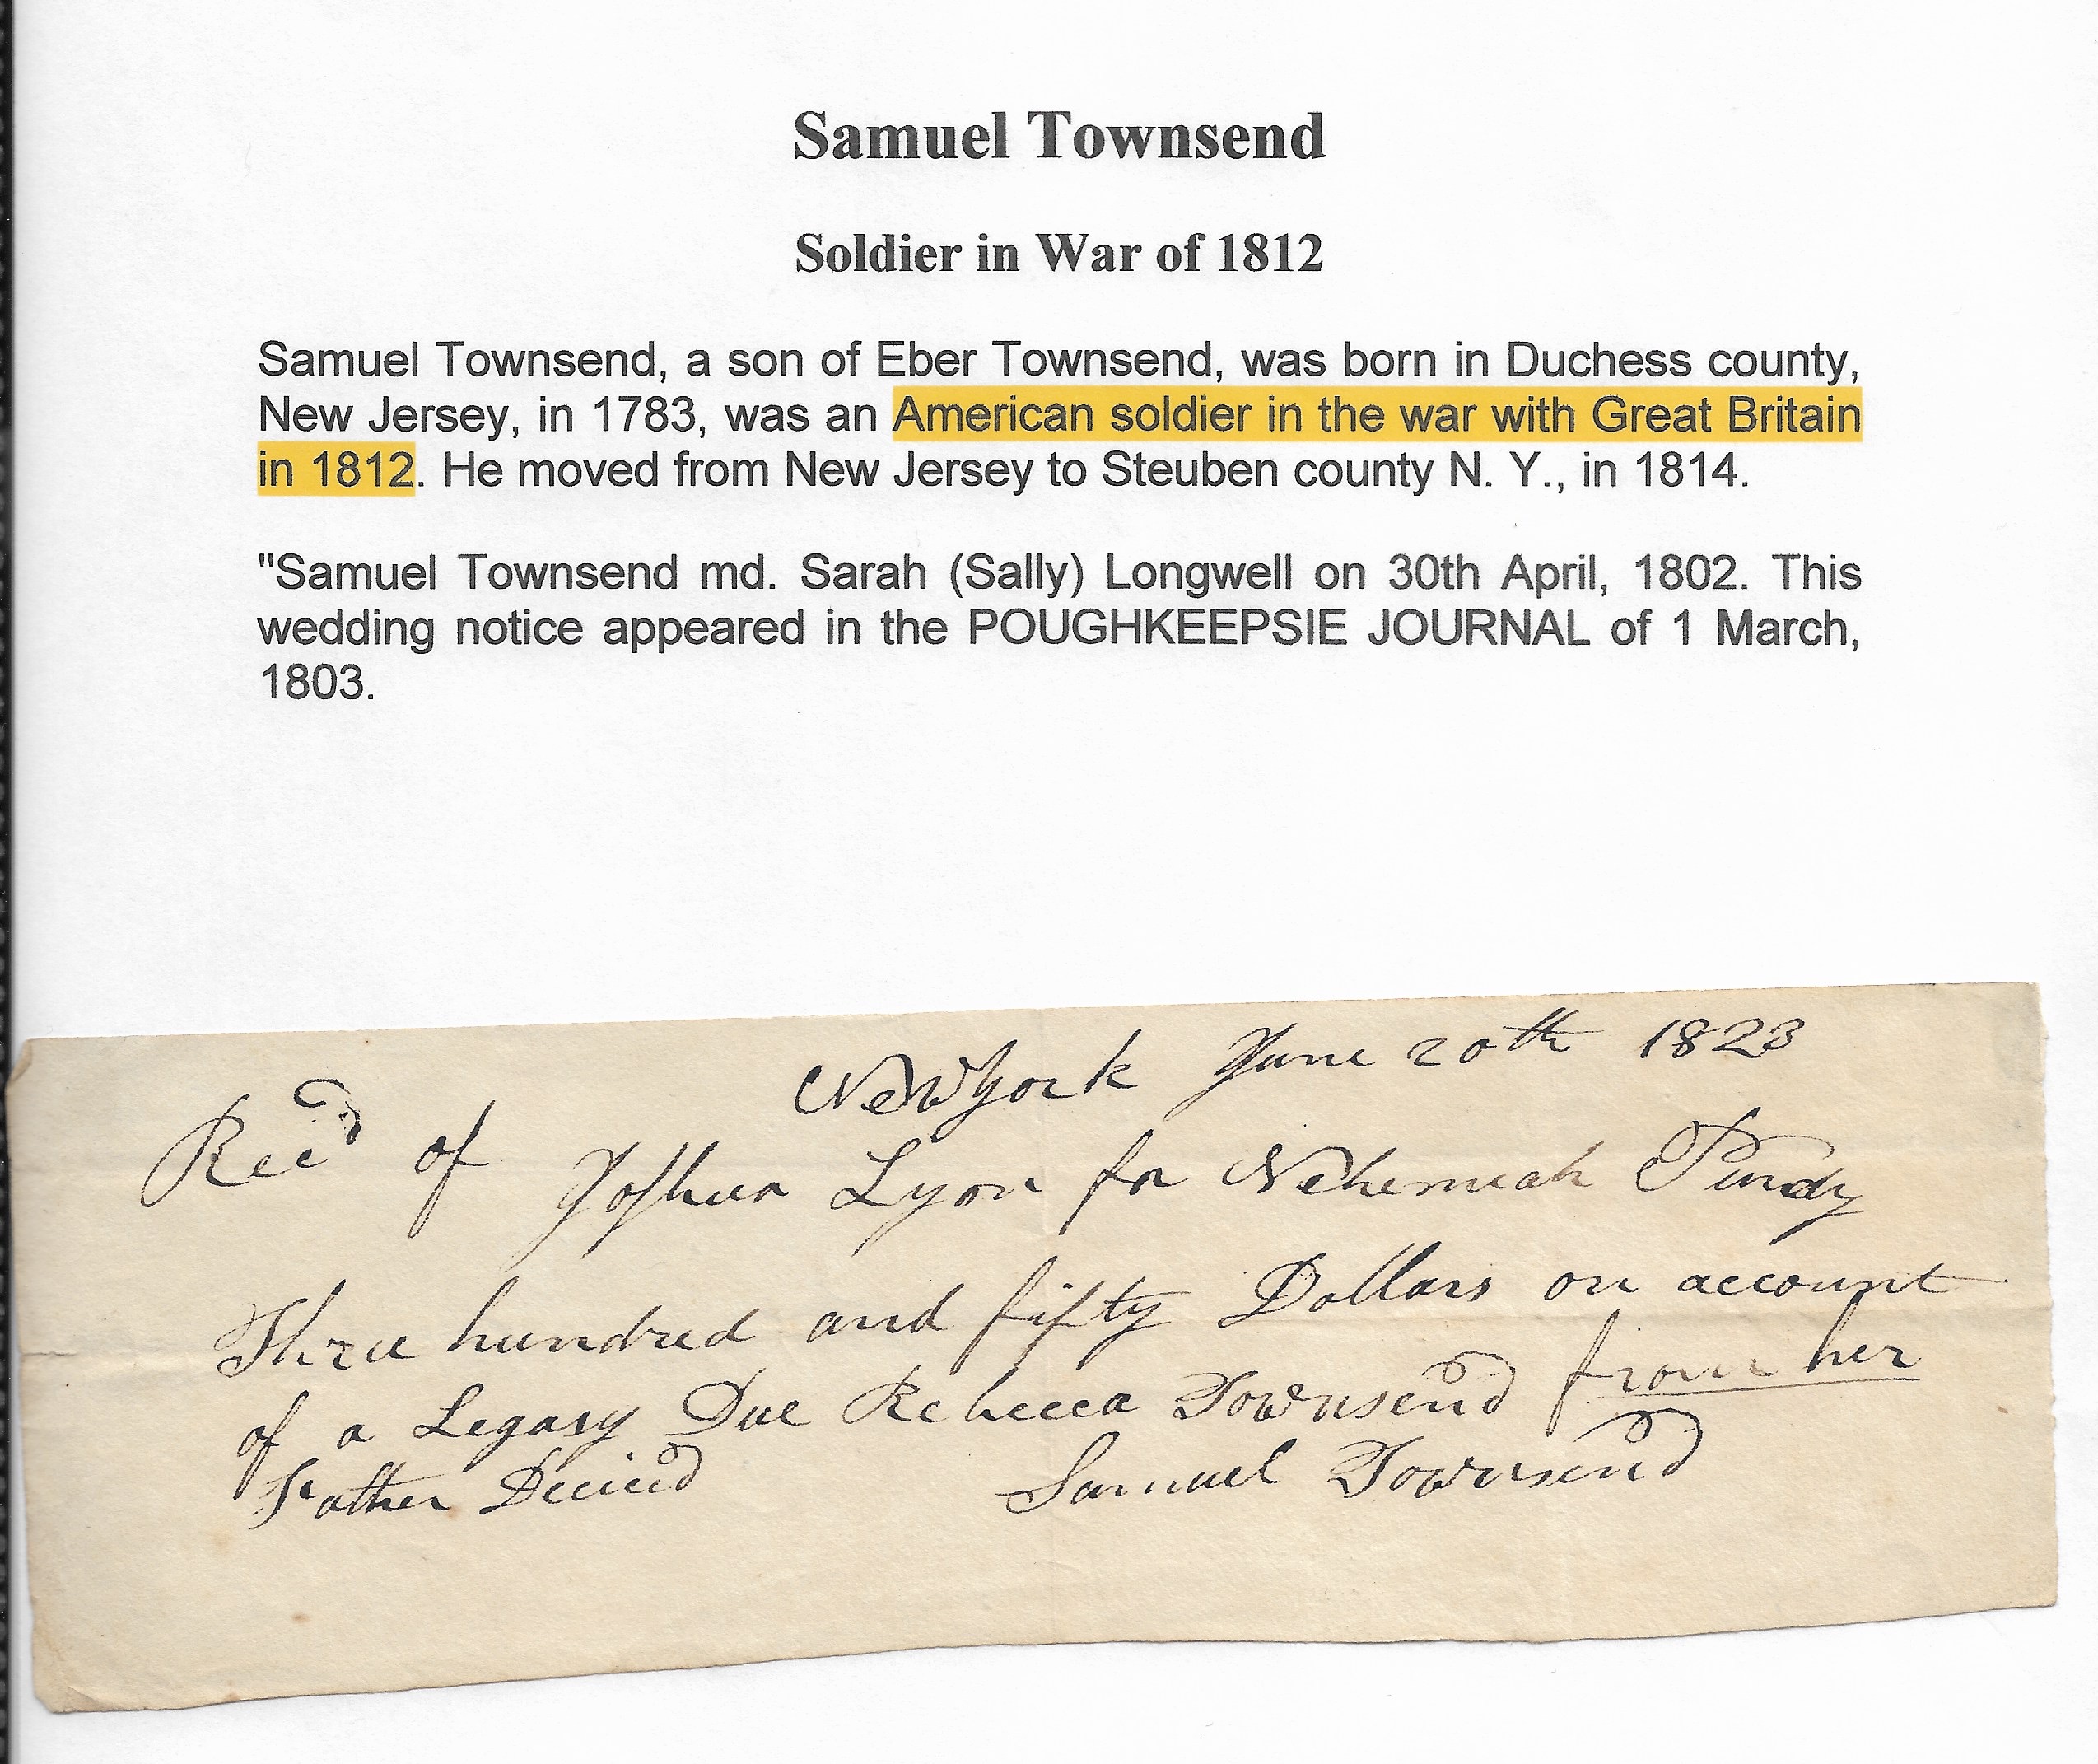 Samuel Townsend
Soldier in War of 1812
Samuel Townsend, a son of Eber Townsend, was born in Duchess county,
New Jersey, in 1783, was an American soldier in the war with Great Britain
in 1812. He moved from New Jersey to Steuben county N. Y., in 1814.
"Samuel Townsend md. Sarah (Sally) Longwell on 30th April, 1802. This
wedding notice appeared in the POUGHKEEPSIE JOURNAL of 1 March,
1803.
New York June 20th 1823
Recd of Joshua Lyon for Nehemiah Purdy
Three hundred and fifty Dollars on account
of a Legasy Due Rebecca Townsend from her
Father Decied
Samuel Townsend